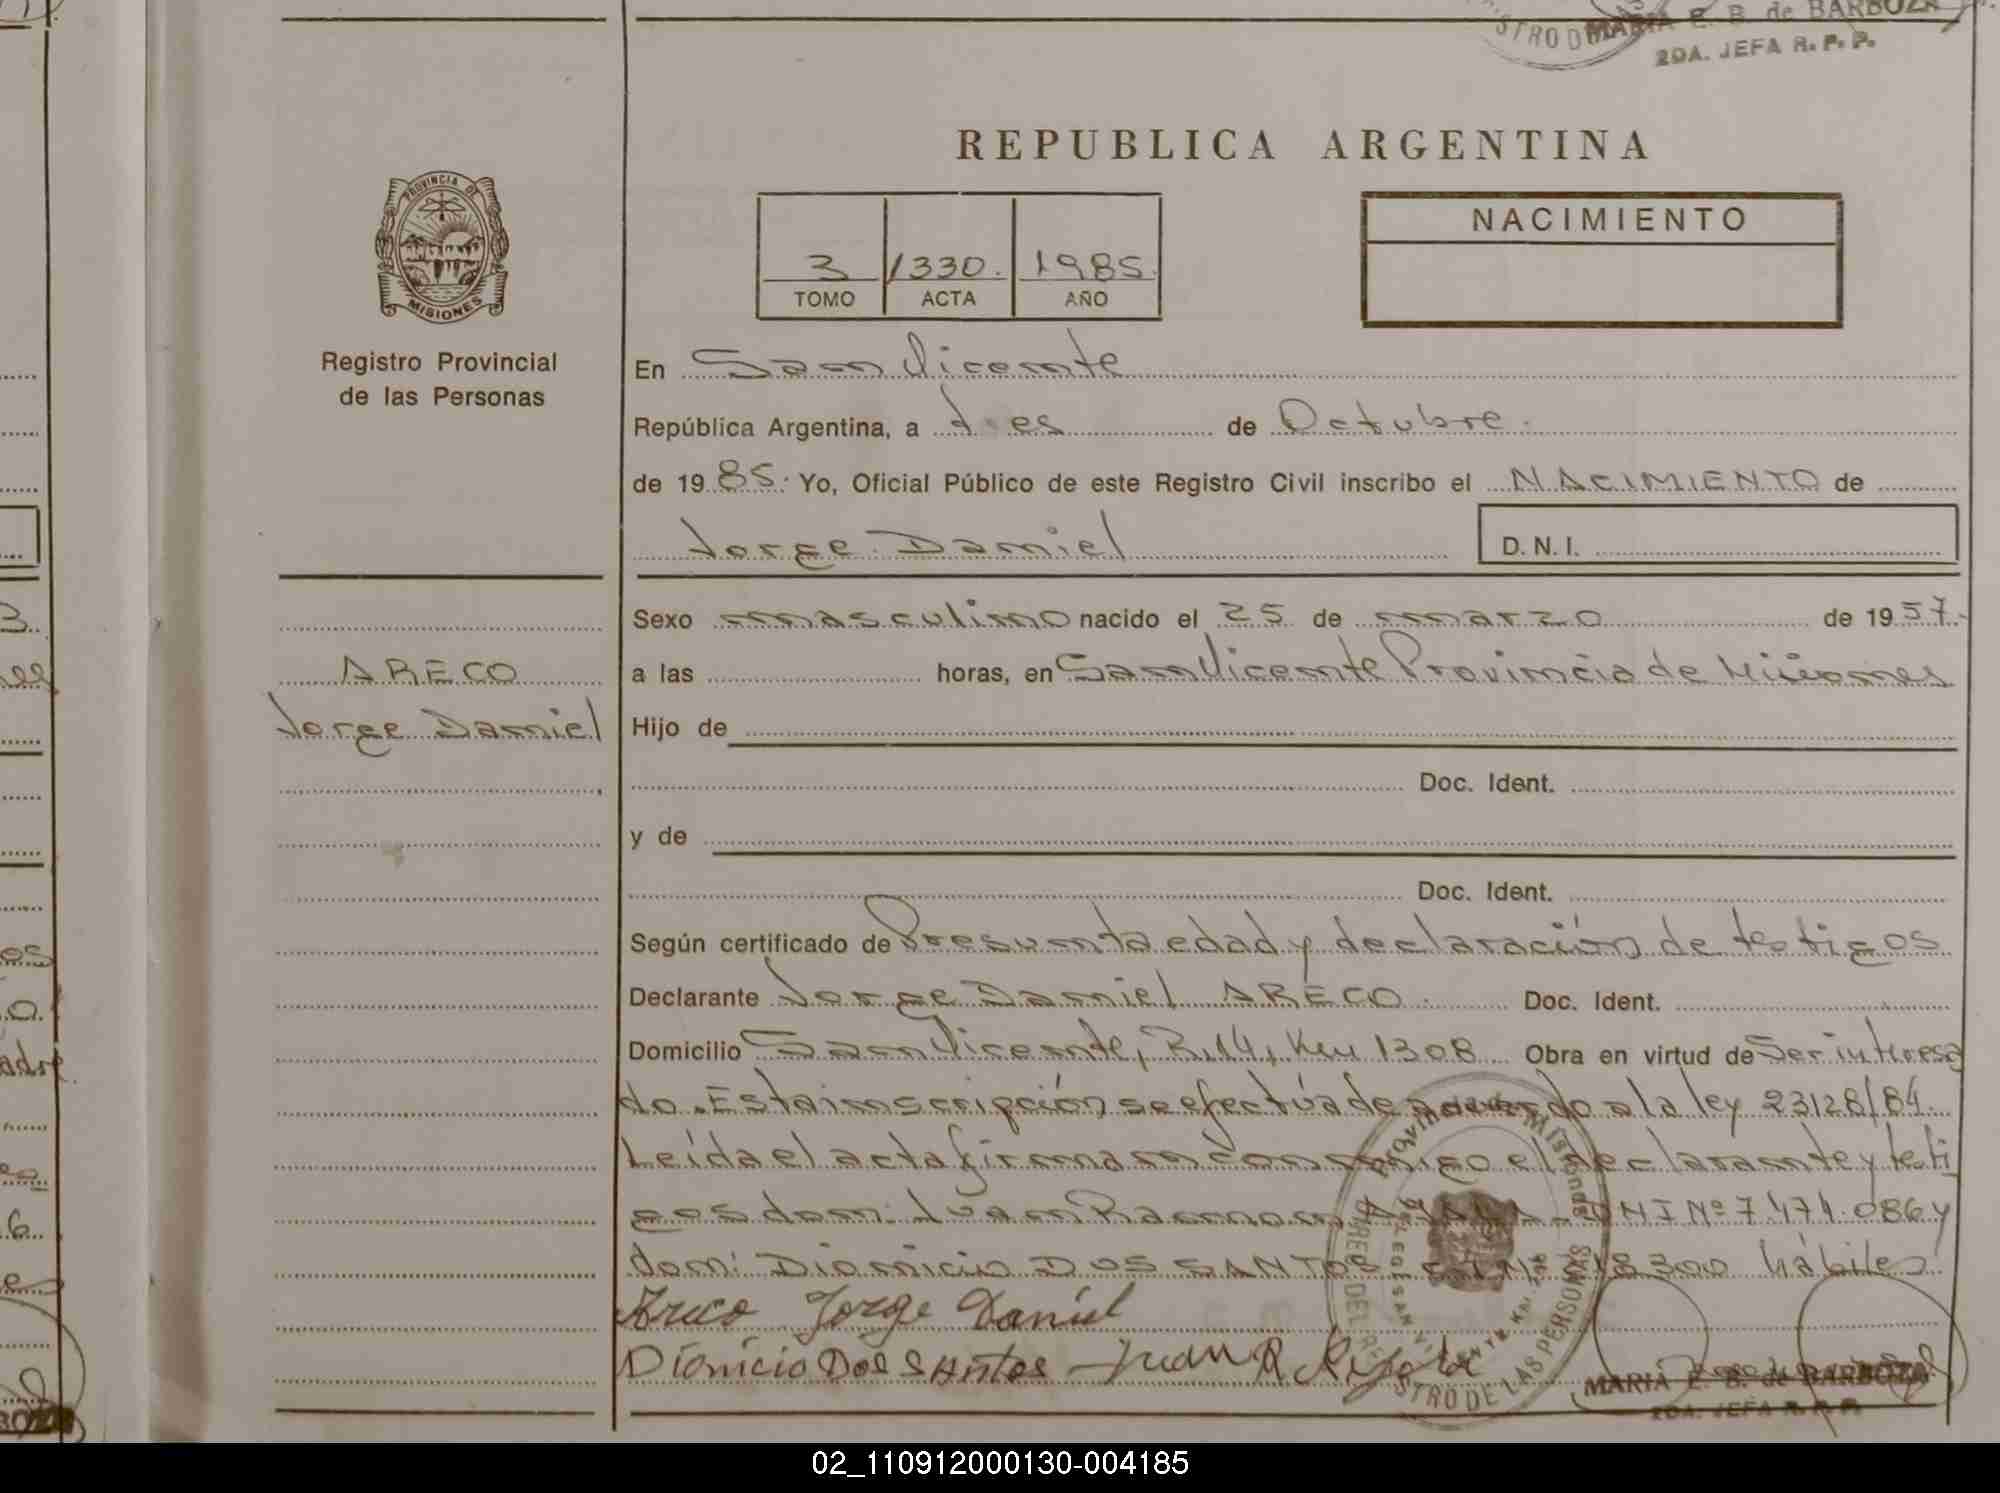 MARIA E. B. de BARBOZA
2DA. JEFA R. P. P.
REPUBLICA ARGENTINA
PROVINCIA DE
MISIONES
Registro Provincial
de las Personas
3 1330. 1985.
TOMO ACTA AÑO
NACIMIENTO
En San Vicente
República Argentina, a de Octubre.
de 1985. Yo, Oficial Público de este Registro Civil inscribo el NACIMIENTO de
Jorge Daniel D. N. I.
ARECO
Jorge Daniel
Sexo masculino nacido el 25 de marzo de 1957.
a las horas, en San Vicente Provincia de Misiones
Hijo de
Doc. Ident.
y de
Doc. Ident.
Según certificado de Presunta edad y declaración de testigos
Declarante Jorge Daniel ARECO. Doc. Ident.
Domicilio San Vicente, R.14, Km 1308 Obra en virtud de Ser interesa
do. Esta inscripción se efectúa de acuerdo a la ley 23128/84.
Leída el acta firman conmigo el declarante y testi
gos don: Juan Ramon DNI Nº 7.474.086 y
don: Dionicio DOS SANTOS 18300 hábiles
Areco Jorge Daniel
Dionicio Dos Santos Juan R
MARIA E. B. de BARBOZA
2DA. JEFA R. P. P.
02_110912000130-004185